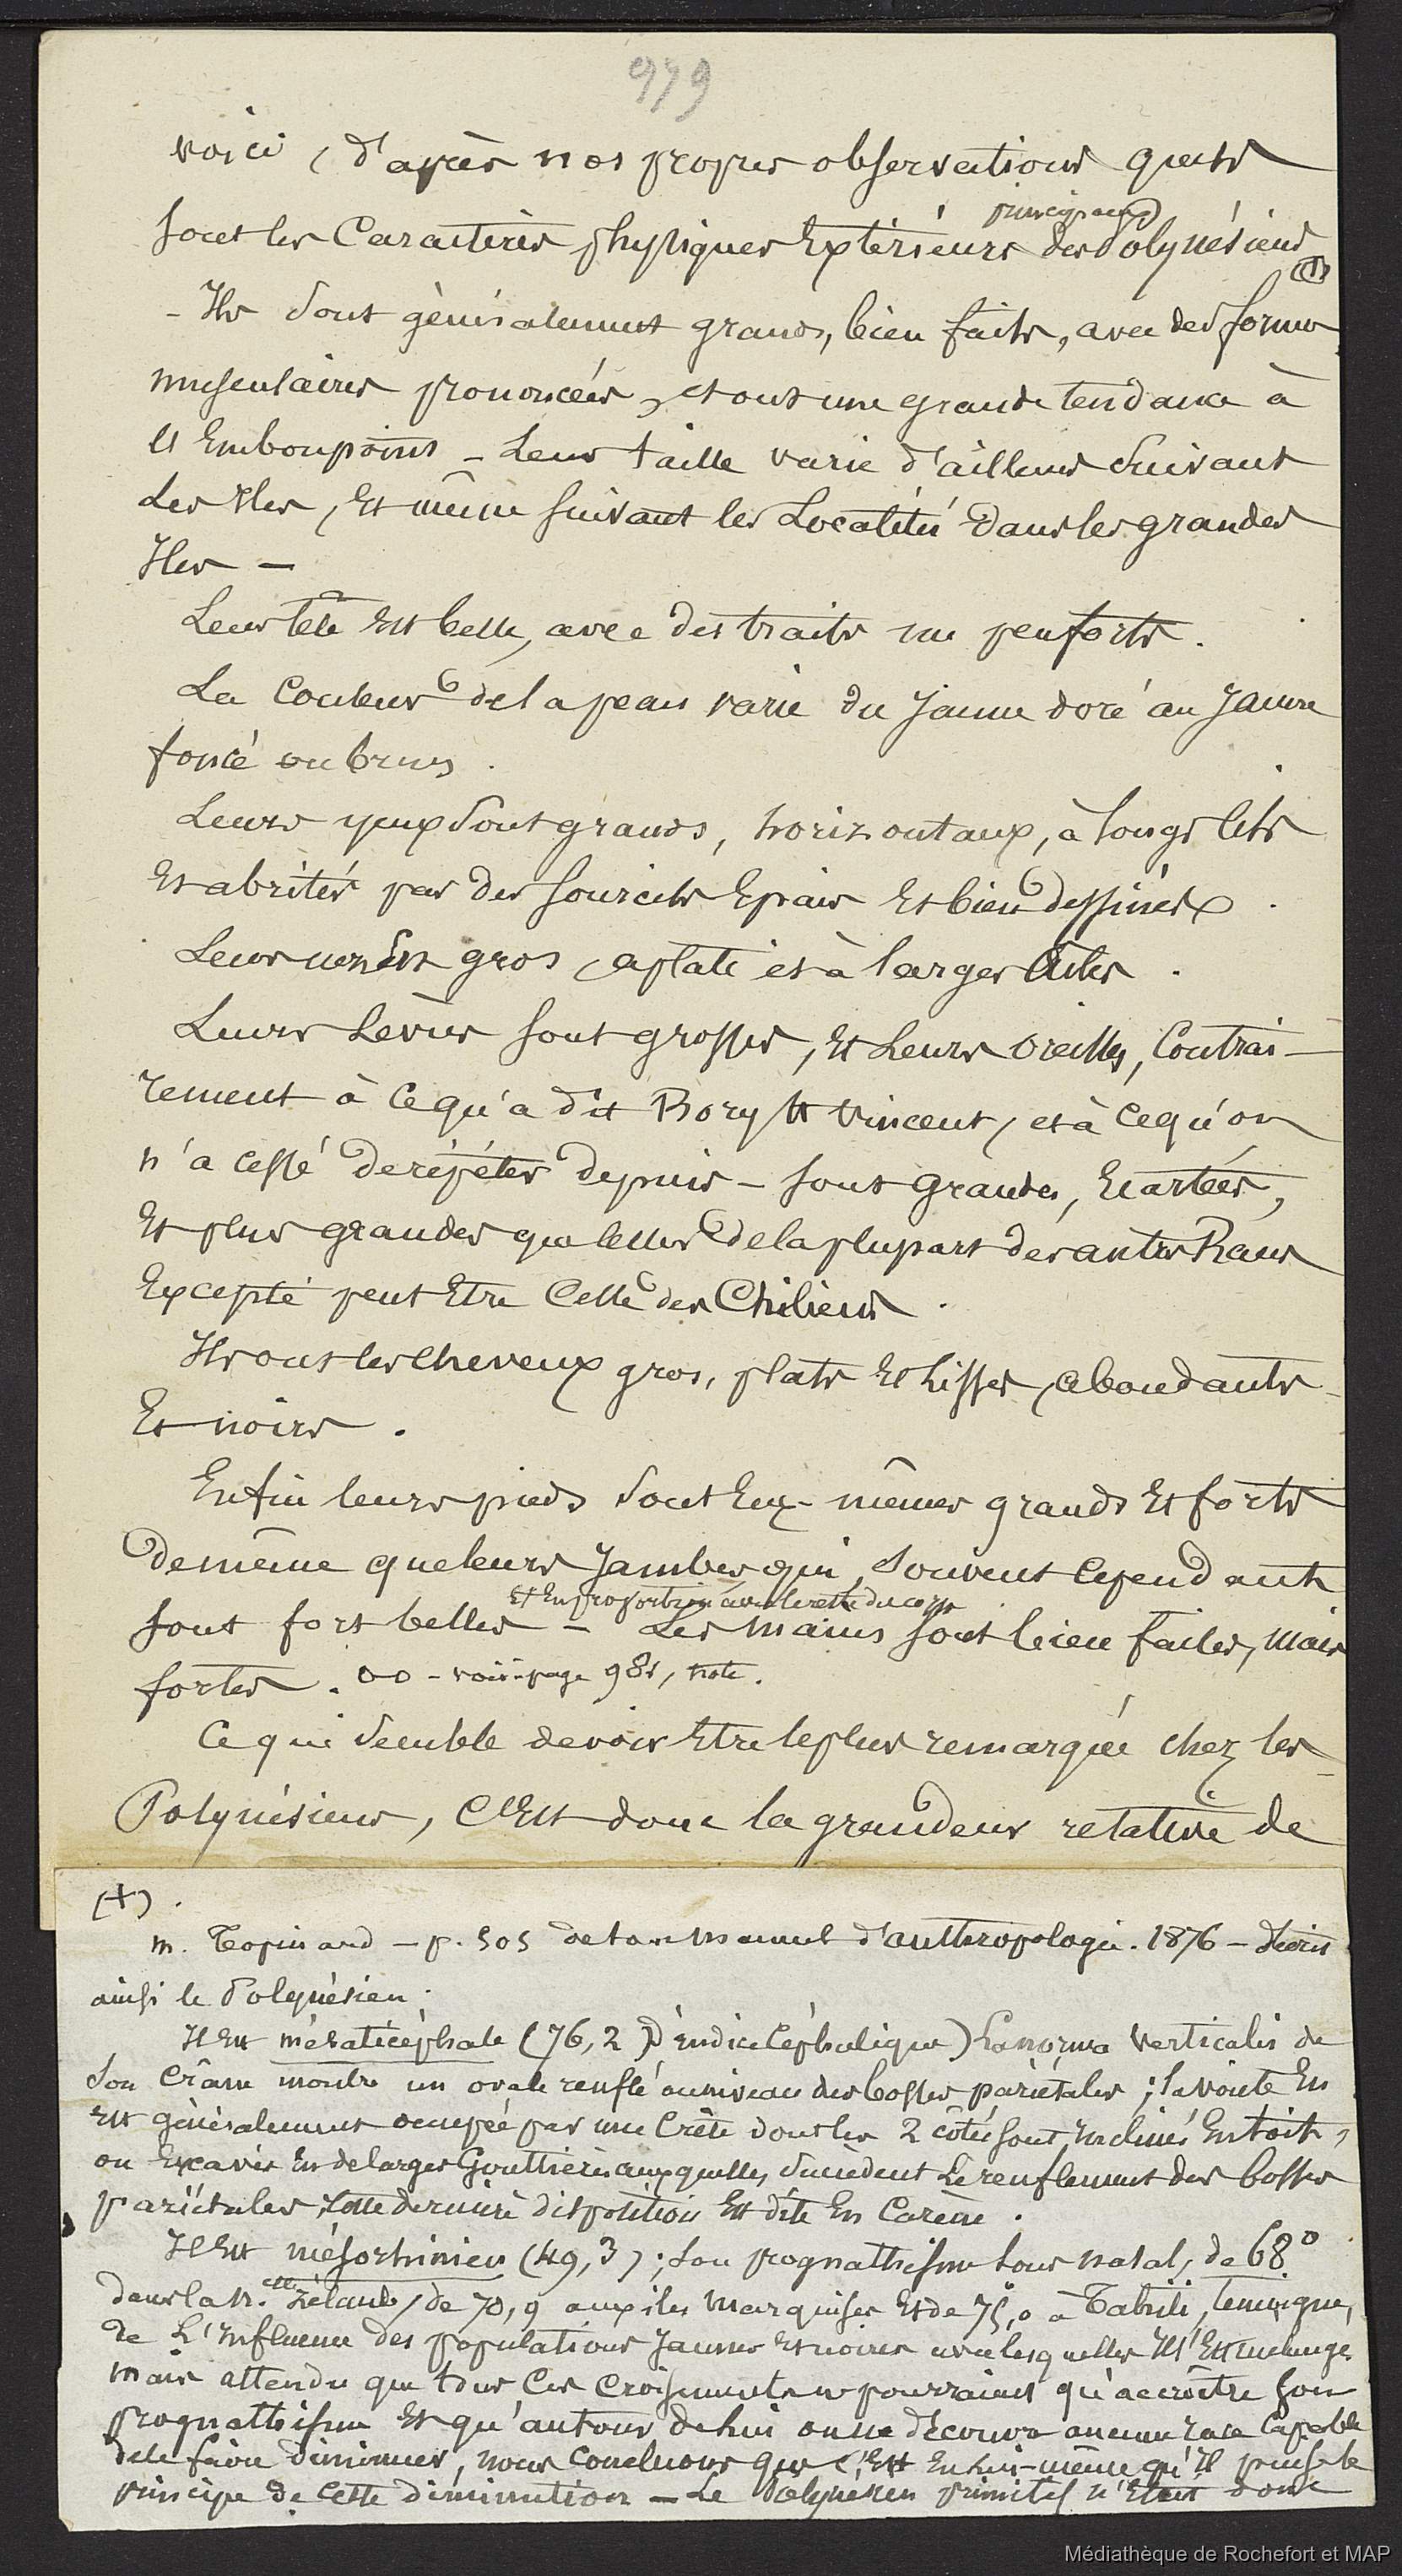 979
voici, d'après nos propres observations quels
sont les Caractères physiques Extérieurs principaux des Polynésiens (1)
- Ils sont généralement grands, bien faits, avec des formes
musculaires prononcées, et ont une grande tendance à
l'Embonpoint - Leur taille varie d'ailleurs suivant
Les Iles, Et même suivant les Localités dans les grandes
Iles -
Leur tête Est belle, avec des traits un peu forts.
La Couleur de la peau varie du Jaune doré au Jaune
foncé ou brun.
Leurs yeux sont grands, horizontaux, à longs cils
Et abrités par des sourcils Epais Et bien dessinés.
Leur nez Est gros, aplati et à larges Ailes.
Leurs Lèvres sont grosses, Et Leurs oreilles, Contrai-
rement à Ce qu'a dit Bory St Vincent, et à Ce qu'on
n'a cessé de répéter depuis - sont grandes, Ecartées,
Et plus grandes que celles de la plupart des autres Races
Excepté peut Etre Celle des Chiliens.
Ils ont les cheveux gros, plats Et Lisses, abondants
Et noirs.
Enfin leurs pieds sont Eux-mêmes grands Et forts
de même que leurs Jambes qui, souvent Cependant
sont fort belles Et En proportion avec le reste du corps - Les mains sont bien faites, Mais
fortes. oo - voir page 981, note.
Ce qui semble devoir Etre le plus remarqué chez les
Polynésiens, C'Est donc la grandeur relative de
(+).
M. Topinard - p. 505 de son Manuel d'anthropologie. 1876 - décrit
ainsi le Polynésien:
Il Est mésaticéphale (76,2 d'indice Céphalique) La norma verticalis de
Son Crâne montre un ovale renflé au niveau des bosses pariétales; la voute En
Est généralement occupée par une Crête dont les 2 côtés sont inclinés En toit,
ou Excavés En de larges Gouttières auxquelles succèdent Le renflement des bosses
pariétales; cette dernière disposition Est dite En Carène.
Il Est mésorhinien (49,3); son prognathisme sous nasal, de 68°
dans la N.elle Zélande, de 70,9 aux iles Marquises Et de 75,0 à Tahiti, témoigne,
de L'Influence des populations Jaunes Et noires avec lesquelles Il s'Est mélangé
mais attendu que tous Ces Croisements ne pourraient qu'accroître son
prognathisme Et qu'autour de lui on ne découvre aucune race Capable
de le faire diminuer, nous Concluons que C'Est En Lui-même qu'Il puise le
principe de Cette diminution - Le Polynésien primitif n'Etait donc
Médiathèque de Rochefort et MAP